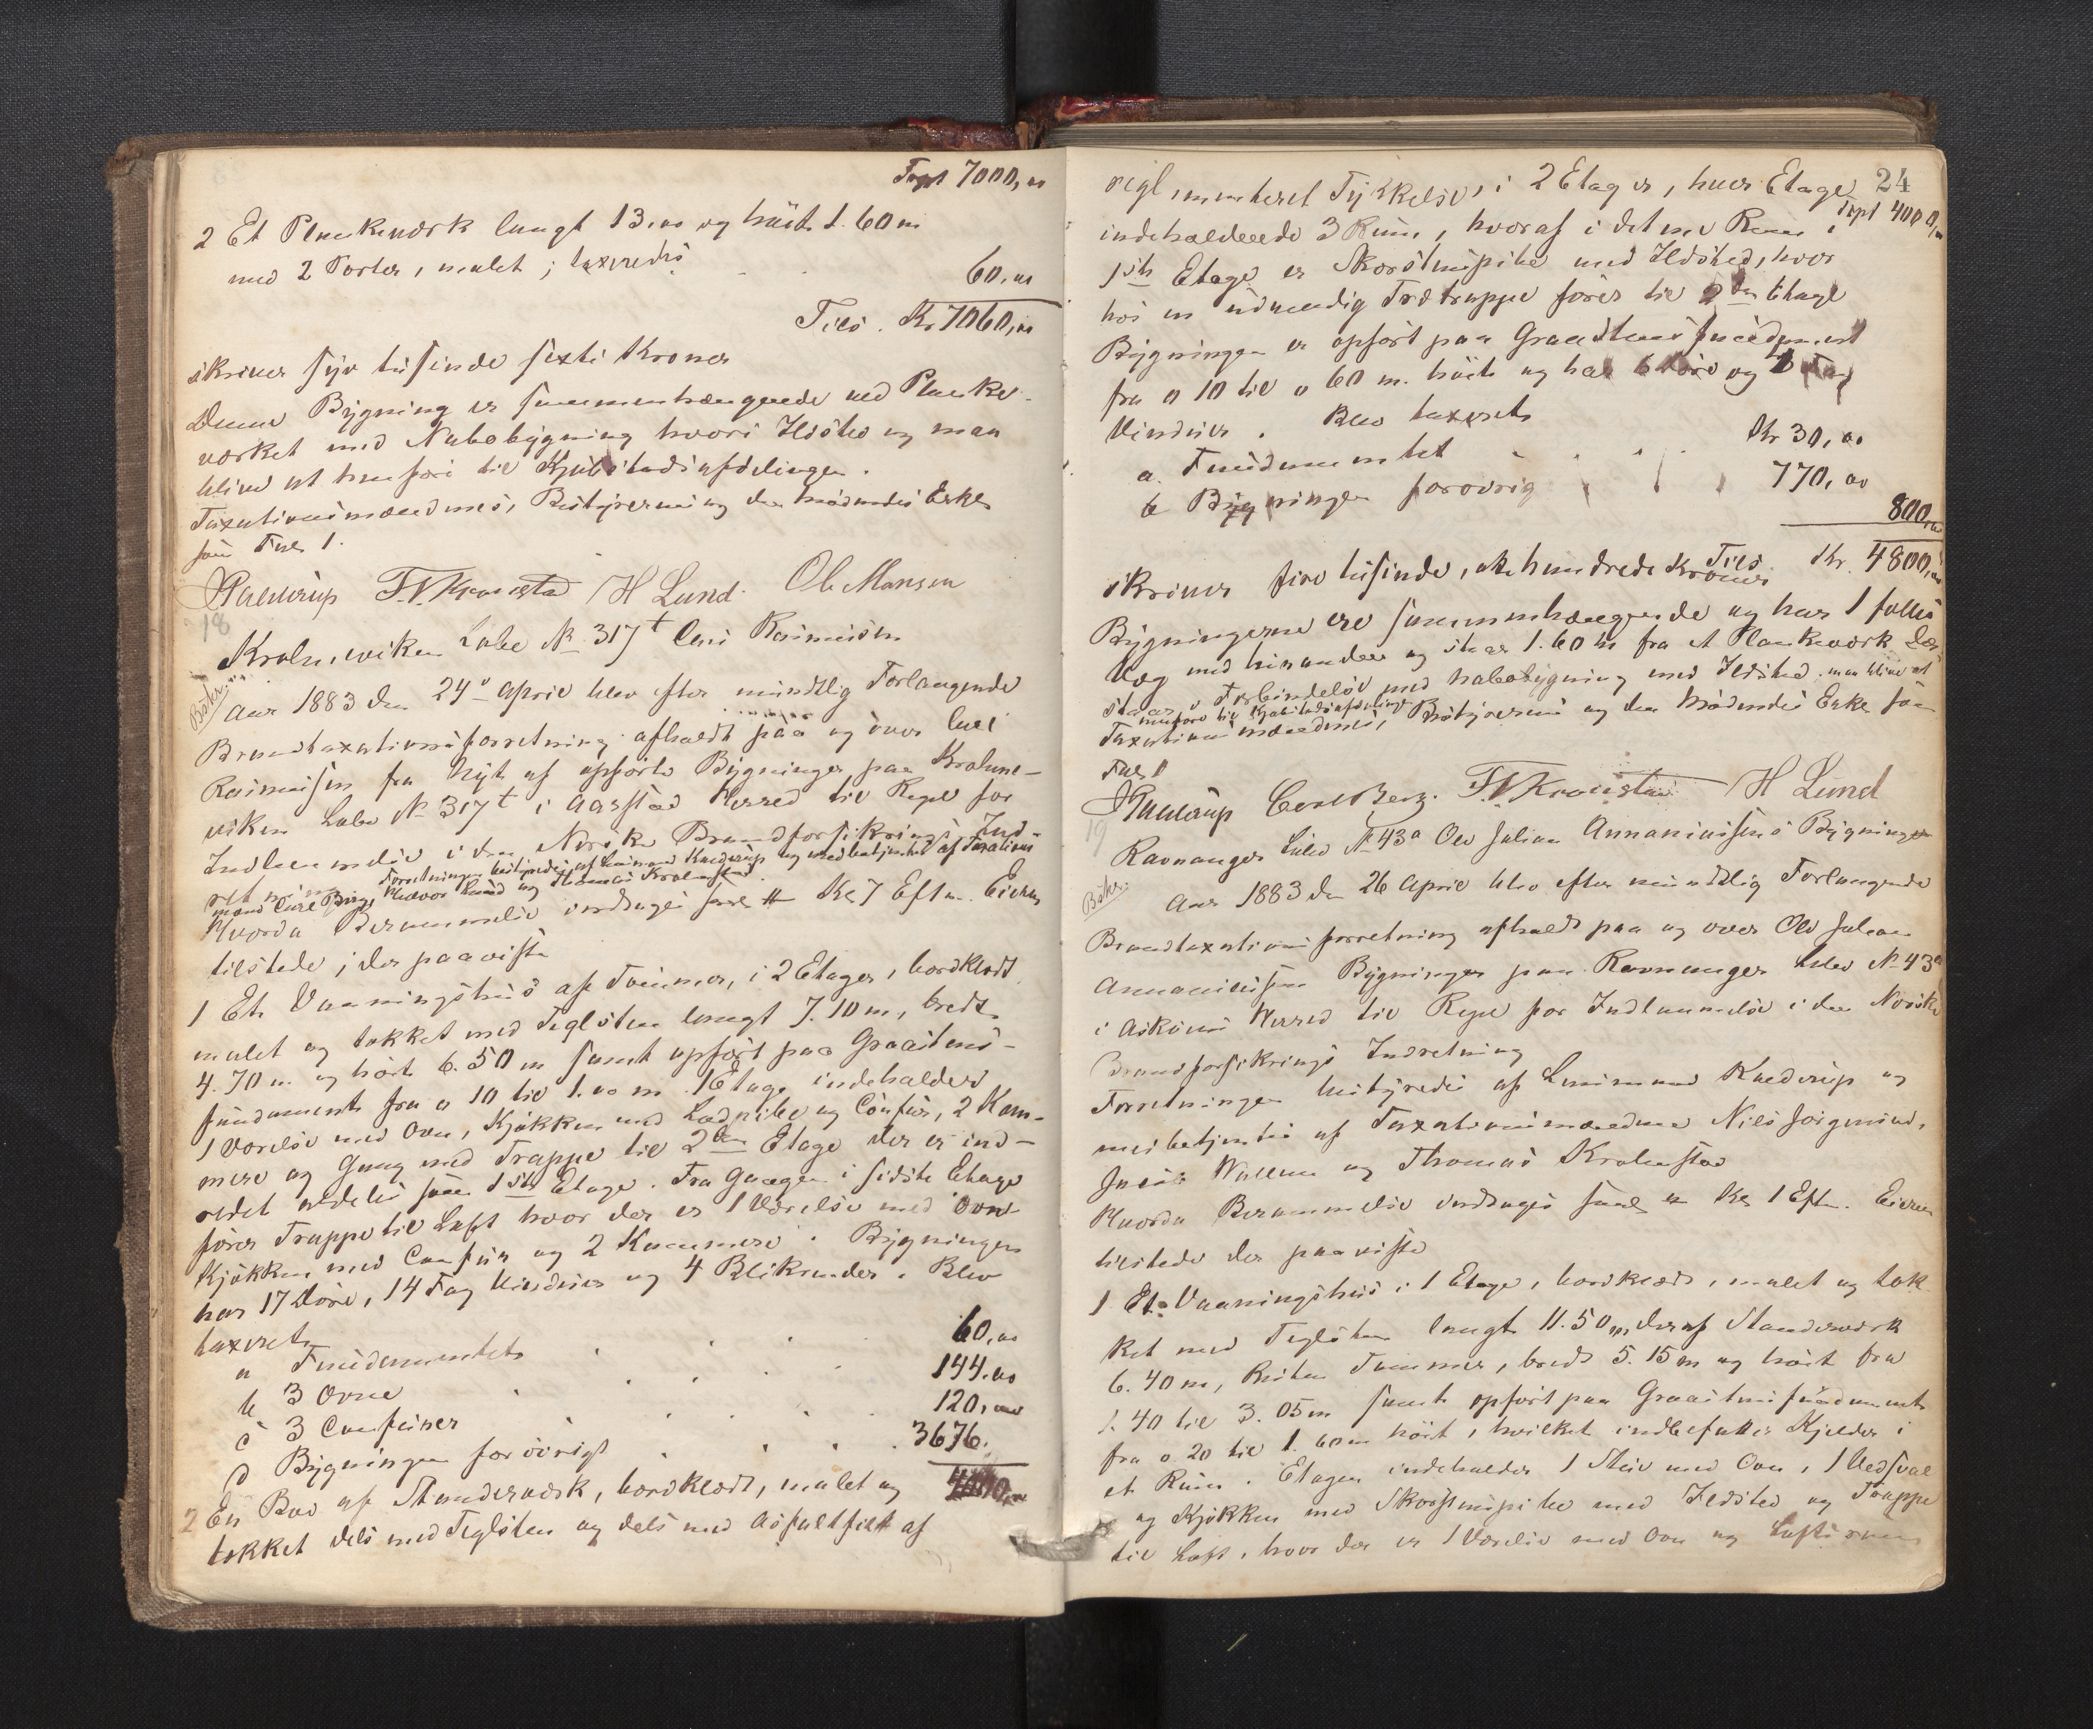 Trspt 7000,00
2 Et Plankeværk langt 13,00 og høit 1.60 m
med 2 Porter, malet; taxeredes
60,00
Tils. Kr 7060,00
skriver syv tusinde sexti Kroner
Denne Bygning er sammenhængende ved Planke-
værket med Nabobygning hvori Ildsted og maa
blive at henføre til Kjøbstadsafdelingen.
Taxationsmændenes, Bestyrerens og den mødendes Erklæ
som Fol. 1.
Kaldrup T. N. Kronstad H Lund. Ole Monsen
18
Krohnviken Løbe No 317t Carl Rasmussen
Bskr.
Aar 1883 den 24de April blev efter mundtlig Forlangende
Brandtaxationsforretning afholdt paa og over Carl
Rasmussen fra Nyt af opførte Bygninger paa Krohn-
viken Løbe No 317t i Aarstad Herred til Regel for
Indlemmelse i den Norske Brandforsikrings Ind-
retning
Forretningen bestyredes af Lensmand Kaldrup og medbetjentes af Taxations
mænd Carl Berg, Halvor Lund og Thomas Krohnstad.
Hvorda Berammelse indtages saal. Kl 7 Eftm. Eieren
tilstede; der paaviste
1 Et Vaaningshus af Tømmer, i 2 Etager, bordklædt
malet og tækket med Teglsten langt 7.10 m, bredt
4.70 m og høit 6.50 m samt opført paa Graastens-
fundament fra 0 10 til 1.00 m. 1 Etage indeholder
1 Værelse med Ovn, Kjøkken med Ladpibe og Comfur, 2 Kam-
mere og Gang med Trappe til 2den Etage der er ind-
redet aldeles som 1ste Etage. Fra Gangen i sidste Etage
fører Trappe til Loft hvor der er 1 Værelse med Ovn
Kjøkken med Comfur og 2 Kammere. Bygningen
har 17 Døre, 14 Fag Vinduer og 4 Blikrender. Blev
taxeret
a Fundamentet 60,00
b 3 Ovne 144.00
c 3 Comfurer 120,00
d Bygningen forøvrigt 3676.
4000,00
2 En Bod af Standerværk, bordklædt, malet og
tækket dels med Teglsten og dels med Asfaltfilt af
24
regl menteret Tykkelse, i 2 Etager, hver Etage
Trspt 4000,00
indeholdende 3 Rum, hvoraf i det ene Rum i
1ste Etage er Skorstenspibe med Ildsted, hvor
hos en udvendig Trætrappe fører til 2den Etage
Bygningen er opført paa Graastensfundament
fra 0 10 til 0 60 m. høit og har 6 Døre og Fag
Vinduer. Blev taxeret
a. Fundamentet Kr 30,00
b Bygningen forøvrig 770,00
800,00
Tils Kr. 4800,00
skriver fire tusinde, otte hundrede Kroner
Bygningerne ere sammenhængende og har 1 fælles
Væg med hinanden og staar 1.60 m fra et Plankeværk der
staar i Forbindelse med nabobygning med Ildsted. maa blive at
henføre til Kjøbstadsafdelingen
Taxationsmændenes, Bestyrerens og den Mødendes Erkl. som
Fol 1
Kaldrup Carl Berg. T. N. Kronstad H Lund
19
Ravnanger Løbe No 43a Ole Julian Annaniassens Bygninger
Bskr.
Aar 1883 den 26 April blev efter mundtlig Forlangende
Brandtaxationsforretning afholdt paa og over Ole Julian
Annaniassen Bygninger paa Ravnanger Løbe No 43a
i Askøens Herred til Regel for Indlemmelse i den Norske
Brandforsikrings Indretning
Forretningen bestyredes af Lensmand Kaldrup og
medbetjentes af Taxationsmændene Nils Jørgensen,
Jacob Vallem og Thomas Krohnstad
Hvorda Berammelse indtages saal. Kl 1 Eftm. Eieren
tilstede der paaviste
1 Et Vaaningshus i 1 Etage, bordklædt, malet og tæk
ket med Teglsten langt 11.50 m, deraf Standerværk
6.40 m, Resten Tømmer, bredt 5.15 m og høit fra
1.40 til 3.05 m samt opført paa Graastensfundament
fra 0.20 til 1.60 m høit, hvilket indbefatter Kjelder i
et Rum. Etagen indeholder 1 Stue med Ovn, 1 Vedsval
og Kjøkken med Skorstenspibe med Ildsted og Trappe
til Loft, hvor der er 1 Værelse med Ovn og Loftsrum